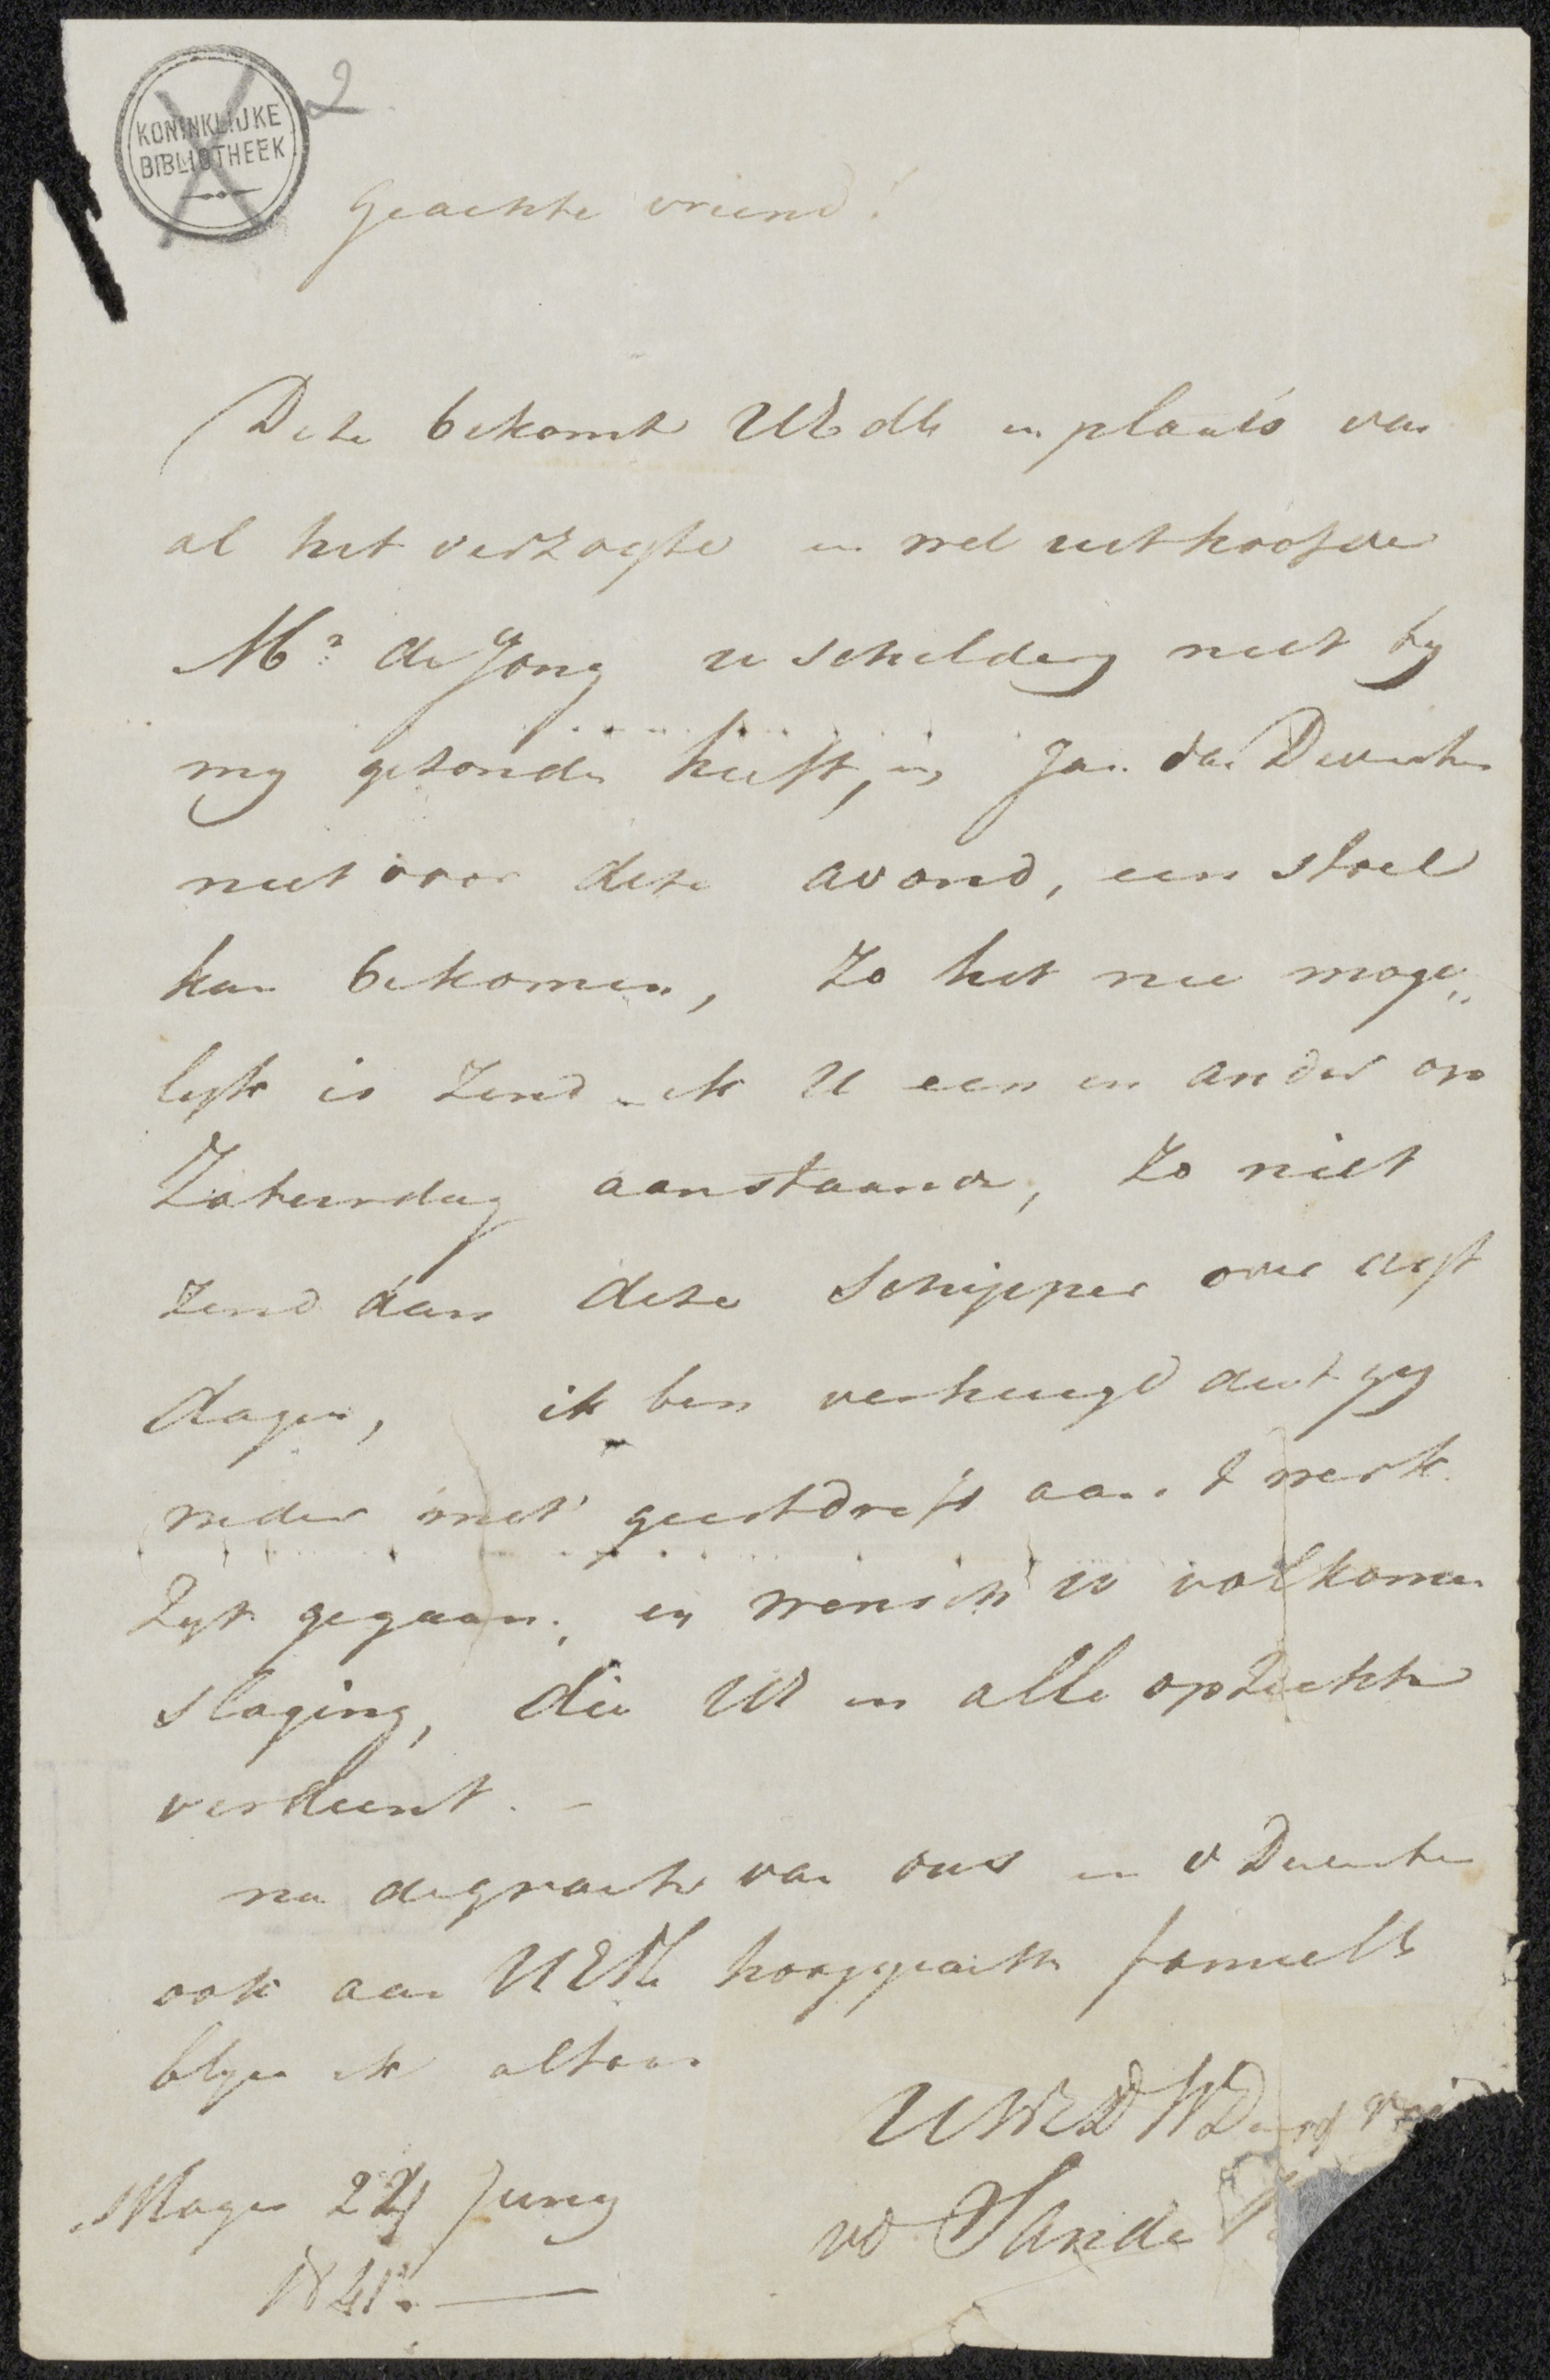 KONINKLIJKE
BIBLIOTHEEK
2
Geachte vriend!
Deze bekomt UEdle in plaats van
al het verzogte en wel uit hoofde
Mr de Jong u schildery niet by
my gezonden heeft, en Jan van Deventer
niet voor deze avond, een stoel
kan bekomen, Zo het nu moge„
lyk is Zend ik U een en ander op
Zaturdag aanstaande, Zo niet
zend dan deze Schipper over agt
dagen, ik ben verheugd dat gy
weder met geestdrift aan 't werk
Zyt gegaan, en wensch U volkomen
slaging, die UE in alle opzichte
verdient. -
na de groete van ons en v Deventer
ook aan UEdle hooggeachte familie
blyve ik altoos
UWED
vd Sande
Hage 24 Juny
1841. —